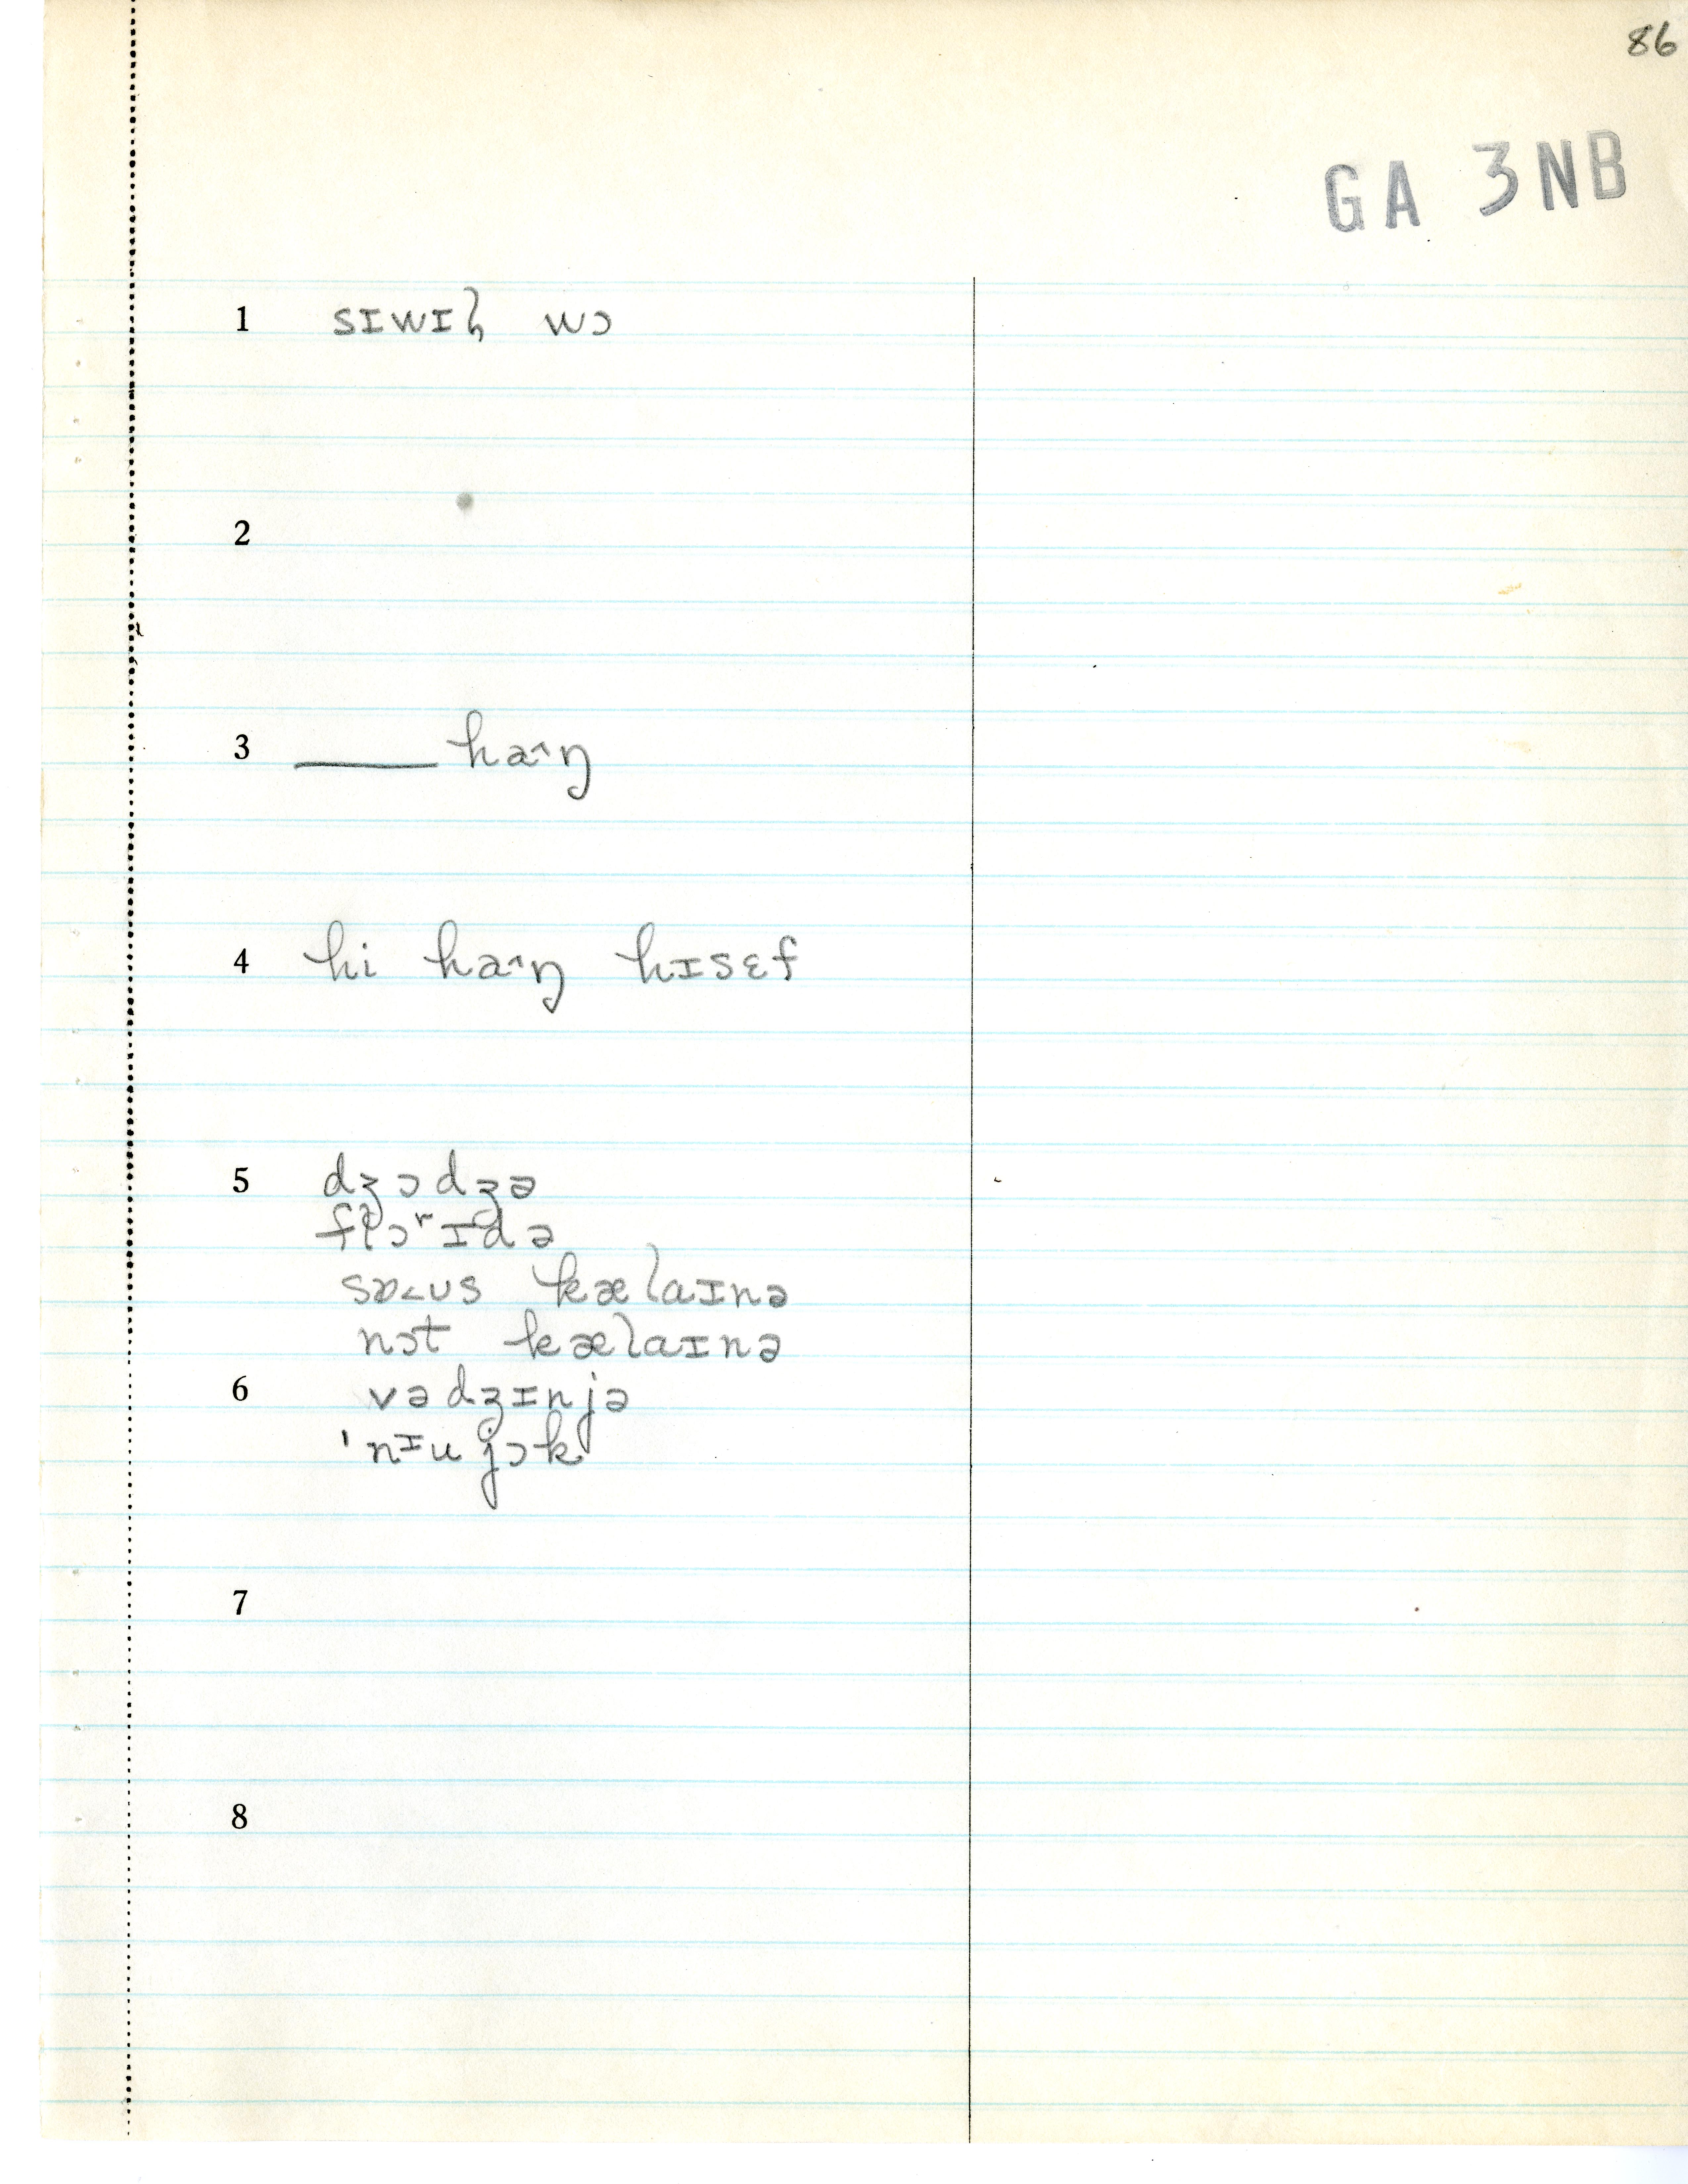 86
GA 3NB
1 sɪwɪl̩ wɔ
2
3 ____ ha^ŋ
4 hi ha^ŋ hɪsɛf
5 dʒɔdʒə
flɔʳɪdə
sɒ<ʊs kælaɪnə
nɔt kælaɪnə
6 vədʒɪnjə
ˈnɪu jɔk
7
8